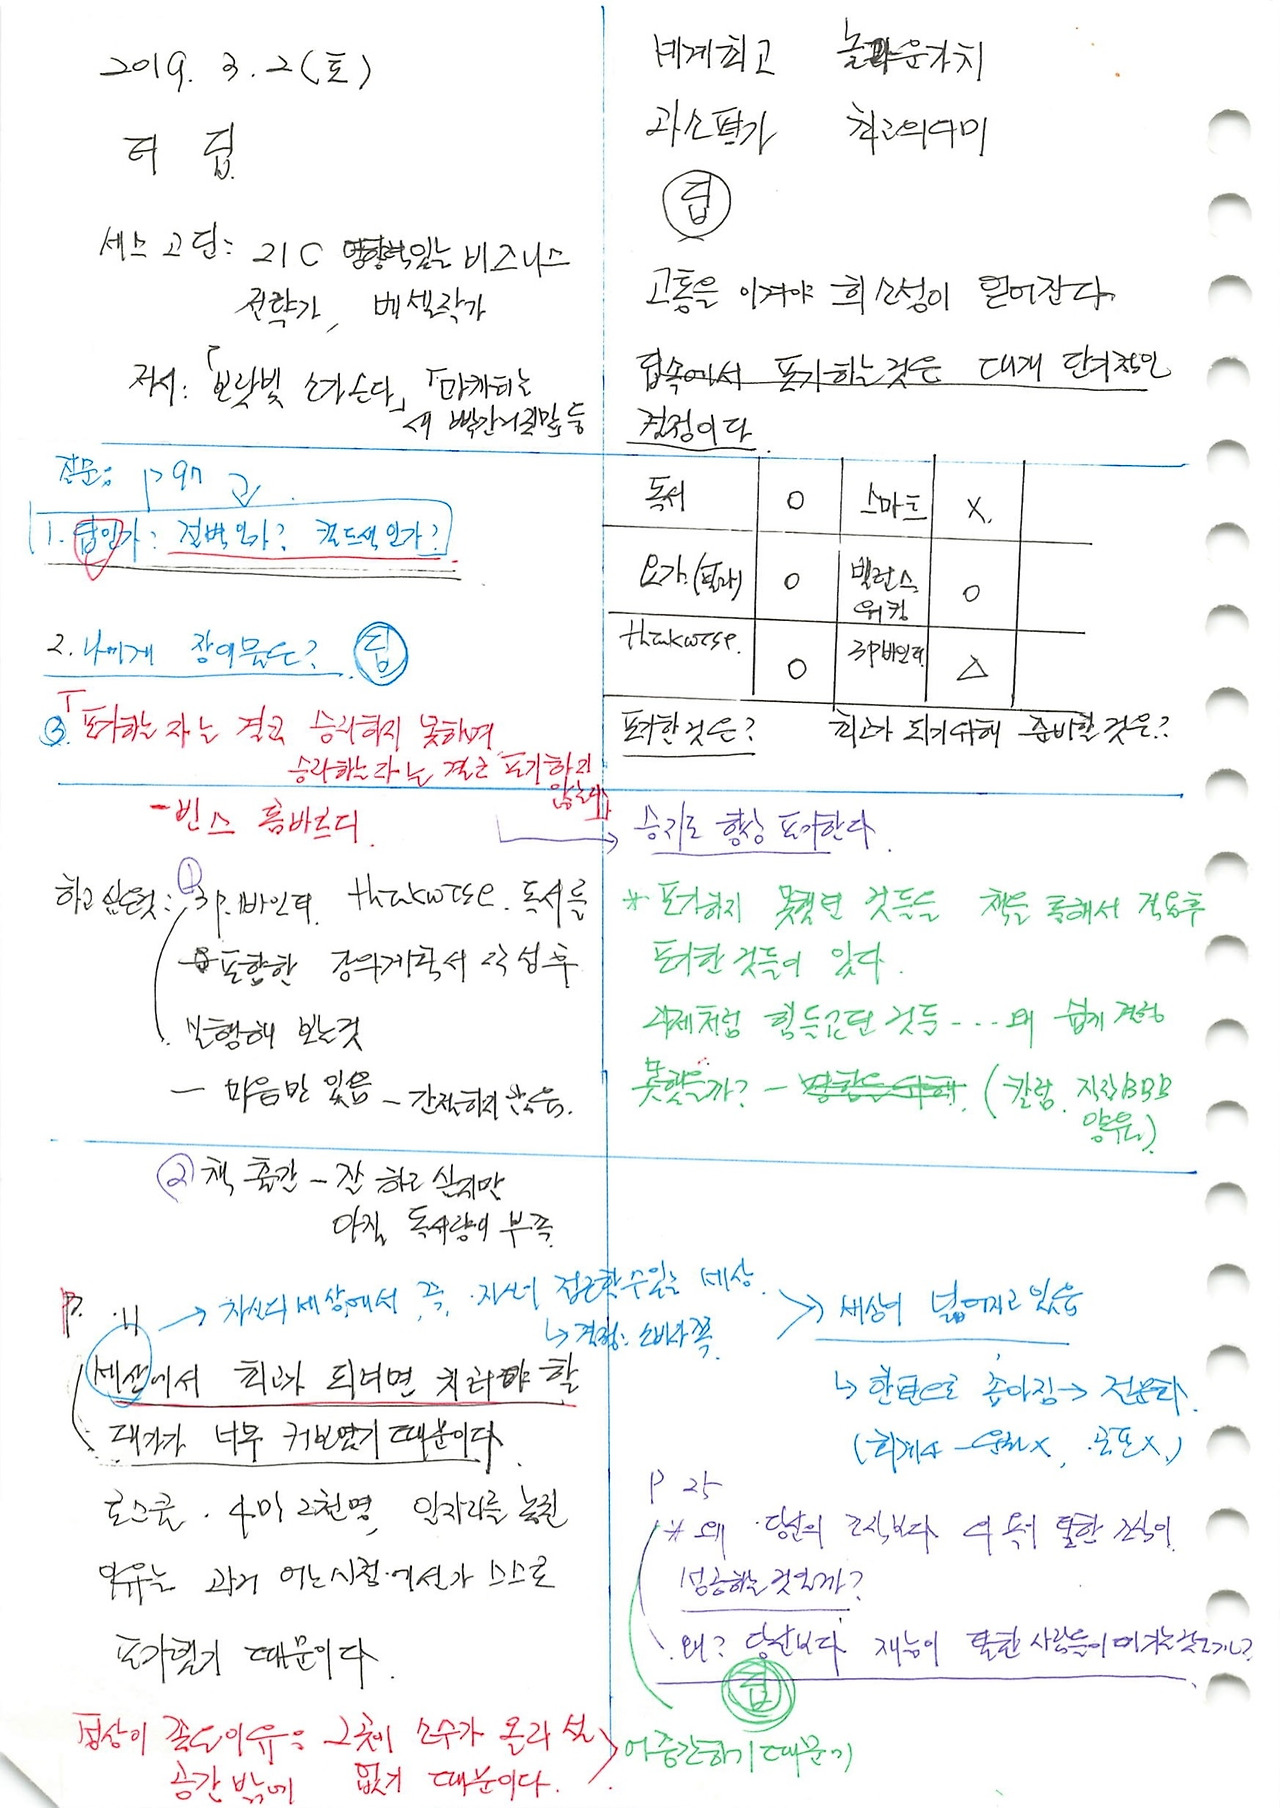 2019. 3. 2 (토)
더 딥
세스 고딘: 21C 영향력있는 비즈니스
전략가, 베셀작가
저서: 「보랏빛 소가 온다」 「마케터는
새빨간거짓말」등
질문: P 97
1. 딥인가? 절벽인가? 컬드색인가?
2. 나에게 장애물은? 딥
3. 「포기하는 자는 결코 승리하지 못하며
승리하는자는 결코 포기하지
않는다」
- 빈스 롬바르디
하고 싶은것: ① 3P바인더. thinkwise. 독서를
포함한 강의계획서 작성후
실행해 보는것
- 마음만 있음 - 간절하지 않음.
② 책 출간 - 잘 하고 싶지만
아직 독서량이 부족
P. 11
→ 자신의 세상에서, 즉, 자신이 접근할수있는 세상.
↳ 결정: 소비자 쪽
세상에서 최고가 되려면 치러야 할
대가가 너무 커보였기 때문이다.
로스쿨. 4만 2천명, 일자리를 놓친
이유는 과거 어느시점에선가 스스로
포기했기 때문이다.
정상이 좁은이유: 그곳에 소수가 올라 설
공간 밖에 없기 때문이다.
세계최고 놀라운가치
과소평가 최고의의미
딥
고통을 이겨야 희소성이 얻어진다.
딥속에서 포기하는것은 대개 단기적인
결정이다.
독서 O 스마트 X.
요가.(필라) O 밸런스 워킹 O
thinkwise. O 3P바인더 △
포기한 것은? 최고가 되기위해 준비할 것은?
→ 승자도 항상 포기한다.
* 포기하지 못했던 것들을 책을 통해서 적용후
포기한 것들이 있다.
숙제처럼 힘들었던 것들... 왜 쉽게 결정
못했을까? - (칼럼, 직장BBB
양육.)
>> 세상이 넓어지고 있음
↳ 한편으로 좁아짐 → 전문화.
P 25
* 왜 당신의 조직보다 더 못한 조직이
성공하는 것일까?
왜? 당신보다 재능이 못한 사람들이 이기는 것인가?
딥
어중간하기 때문에